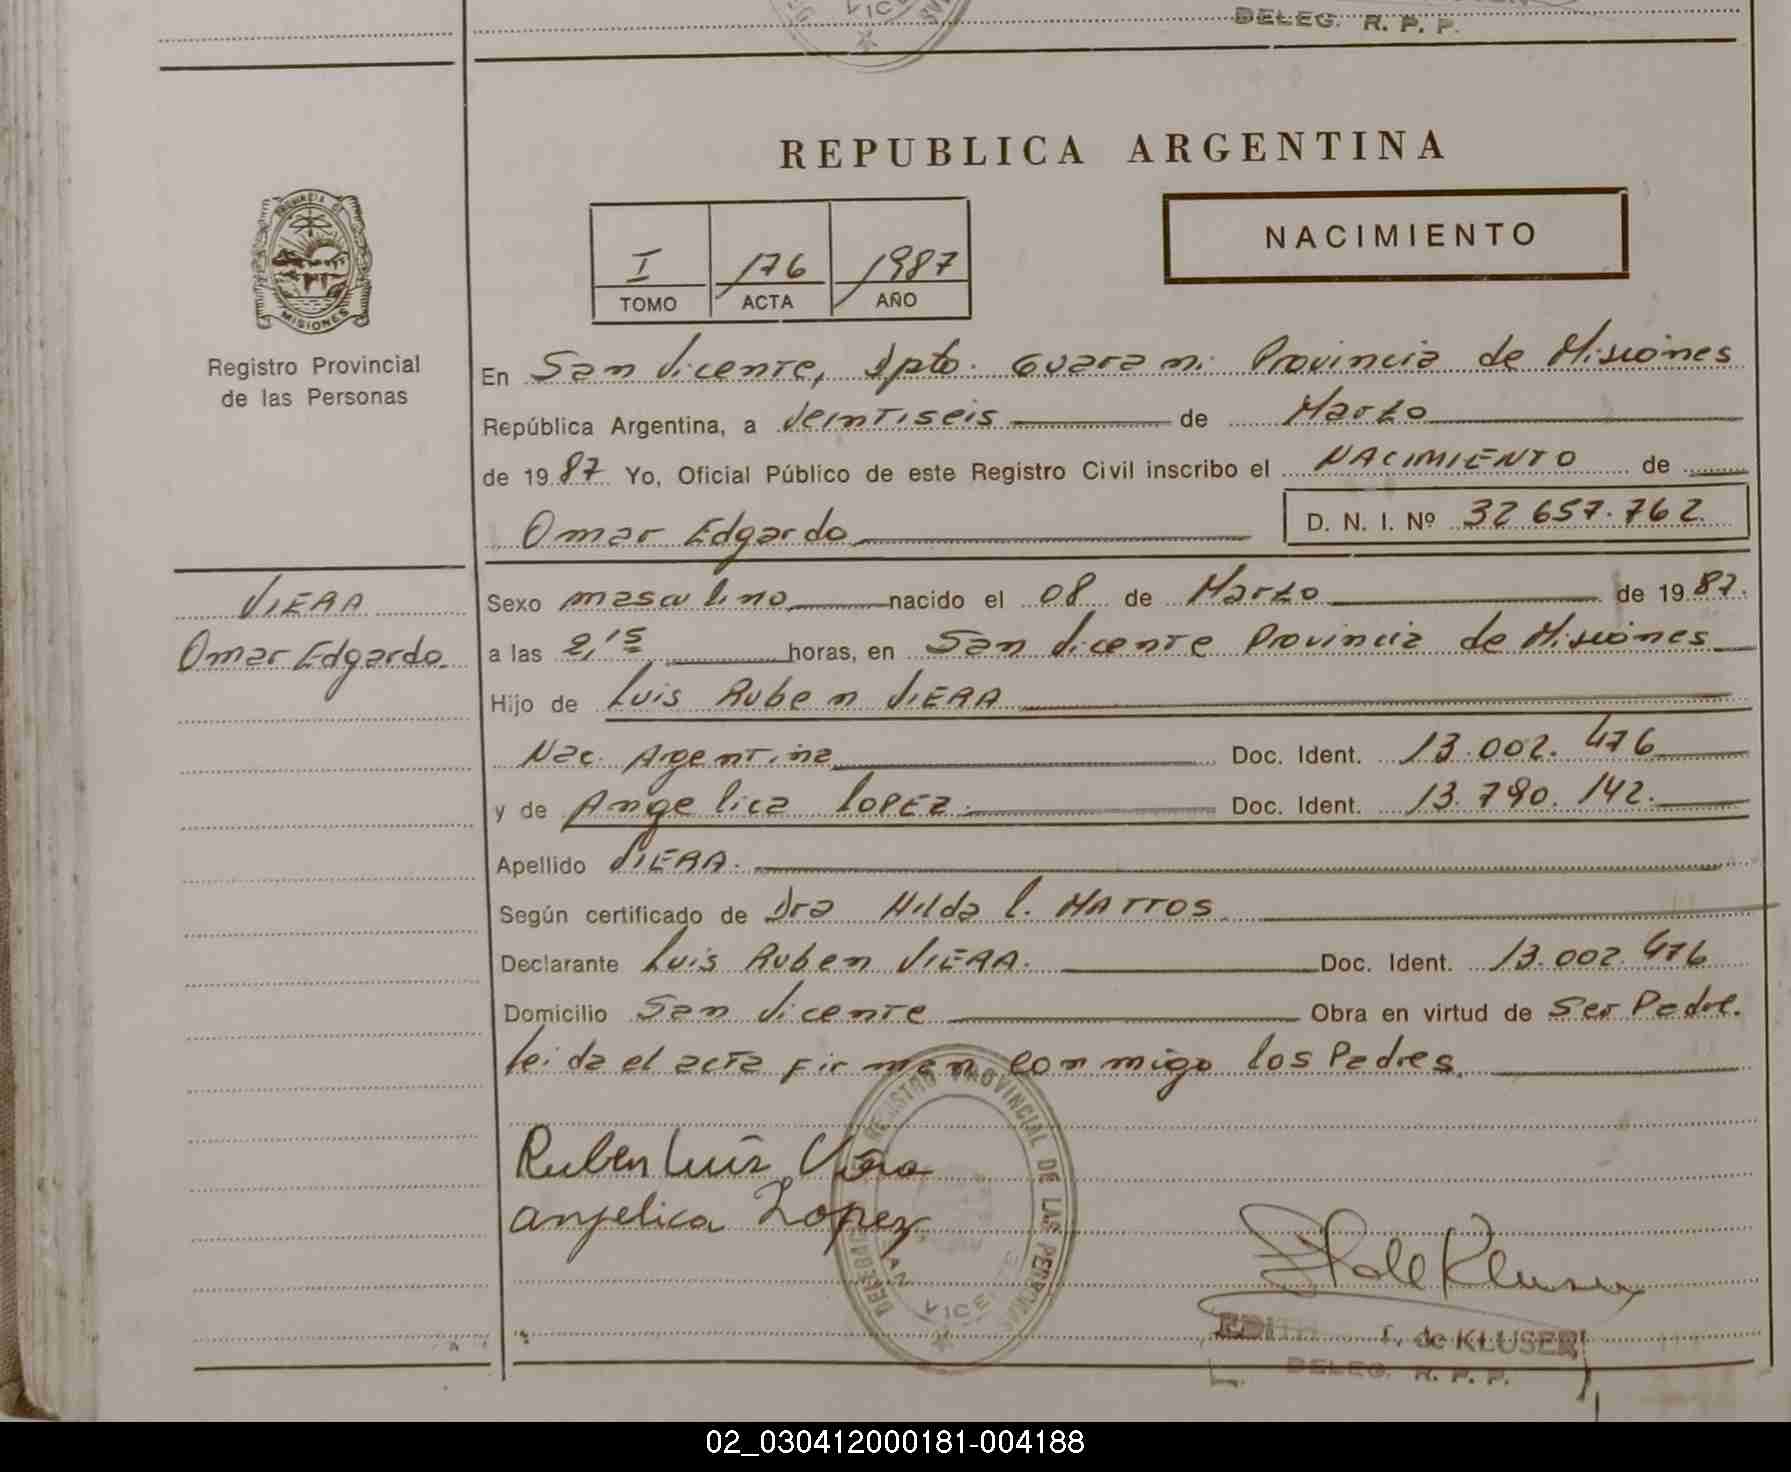 DELEG. R. P. P.
REPUBLICA ARGENTINA
NACIMIENTO
I 176 1987
TOMO ACTA AÑO
PROVINCIA DE
MISIONES
Registro Provincial
de las Personas
En San Vicente, Dpto. Guarani Provincia de Misiones
República Argentina, a Veintiseis de Marzo
de 1987 Yo, Oficial Público de este Registro Civil inscribo el NACIMIENTO de
Omar Edgardo D. N. I. Nº 32 657.762
VIERA
Omar Edgardo.
Sexo masculino nacido el 08 de Marzo de 1987.
a las 2,15 horas, en San Vicente Provincia de Misiones
Hijo de Luis Ruben VIERA
Nac. Argentina Doc. Ident. 13.002.476
y de Angelica LOPEZ. Doc. Ident. 13.790.142.
Apellido VIERA.
Según certificado de Dra Hilda l. MATTOS
Declarante Luis Ruben VIERA. Doc. Ident. 13.002 476
Domicilio San Vicente Obra en virtud de Ser Padre.
leida el acta firman conmigo los Padres.
Ruben Luis Viera
angelica Lopez
REGISTRO PROVINCIAL DE LAS PERSONAS
SAN VICENTE
de Kluser
EDITH de KLUSER
DELEG. R. P. P.
02_030412000181-004188